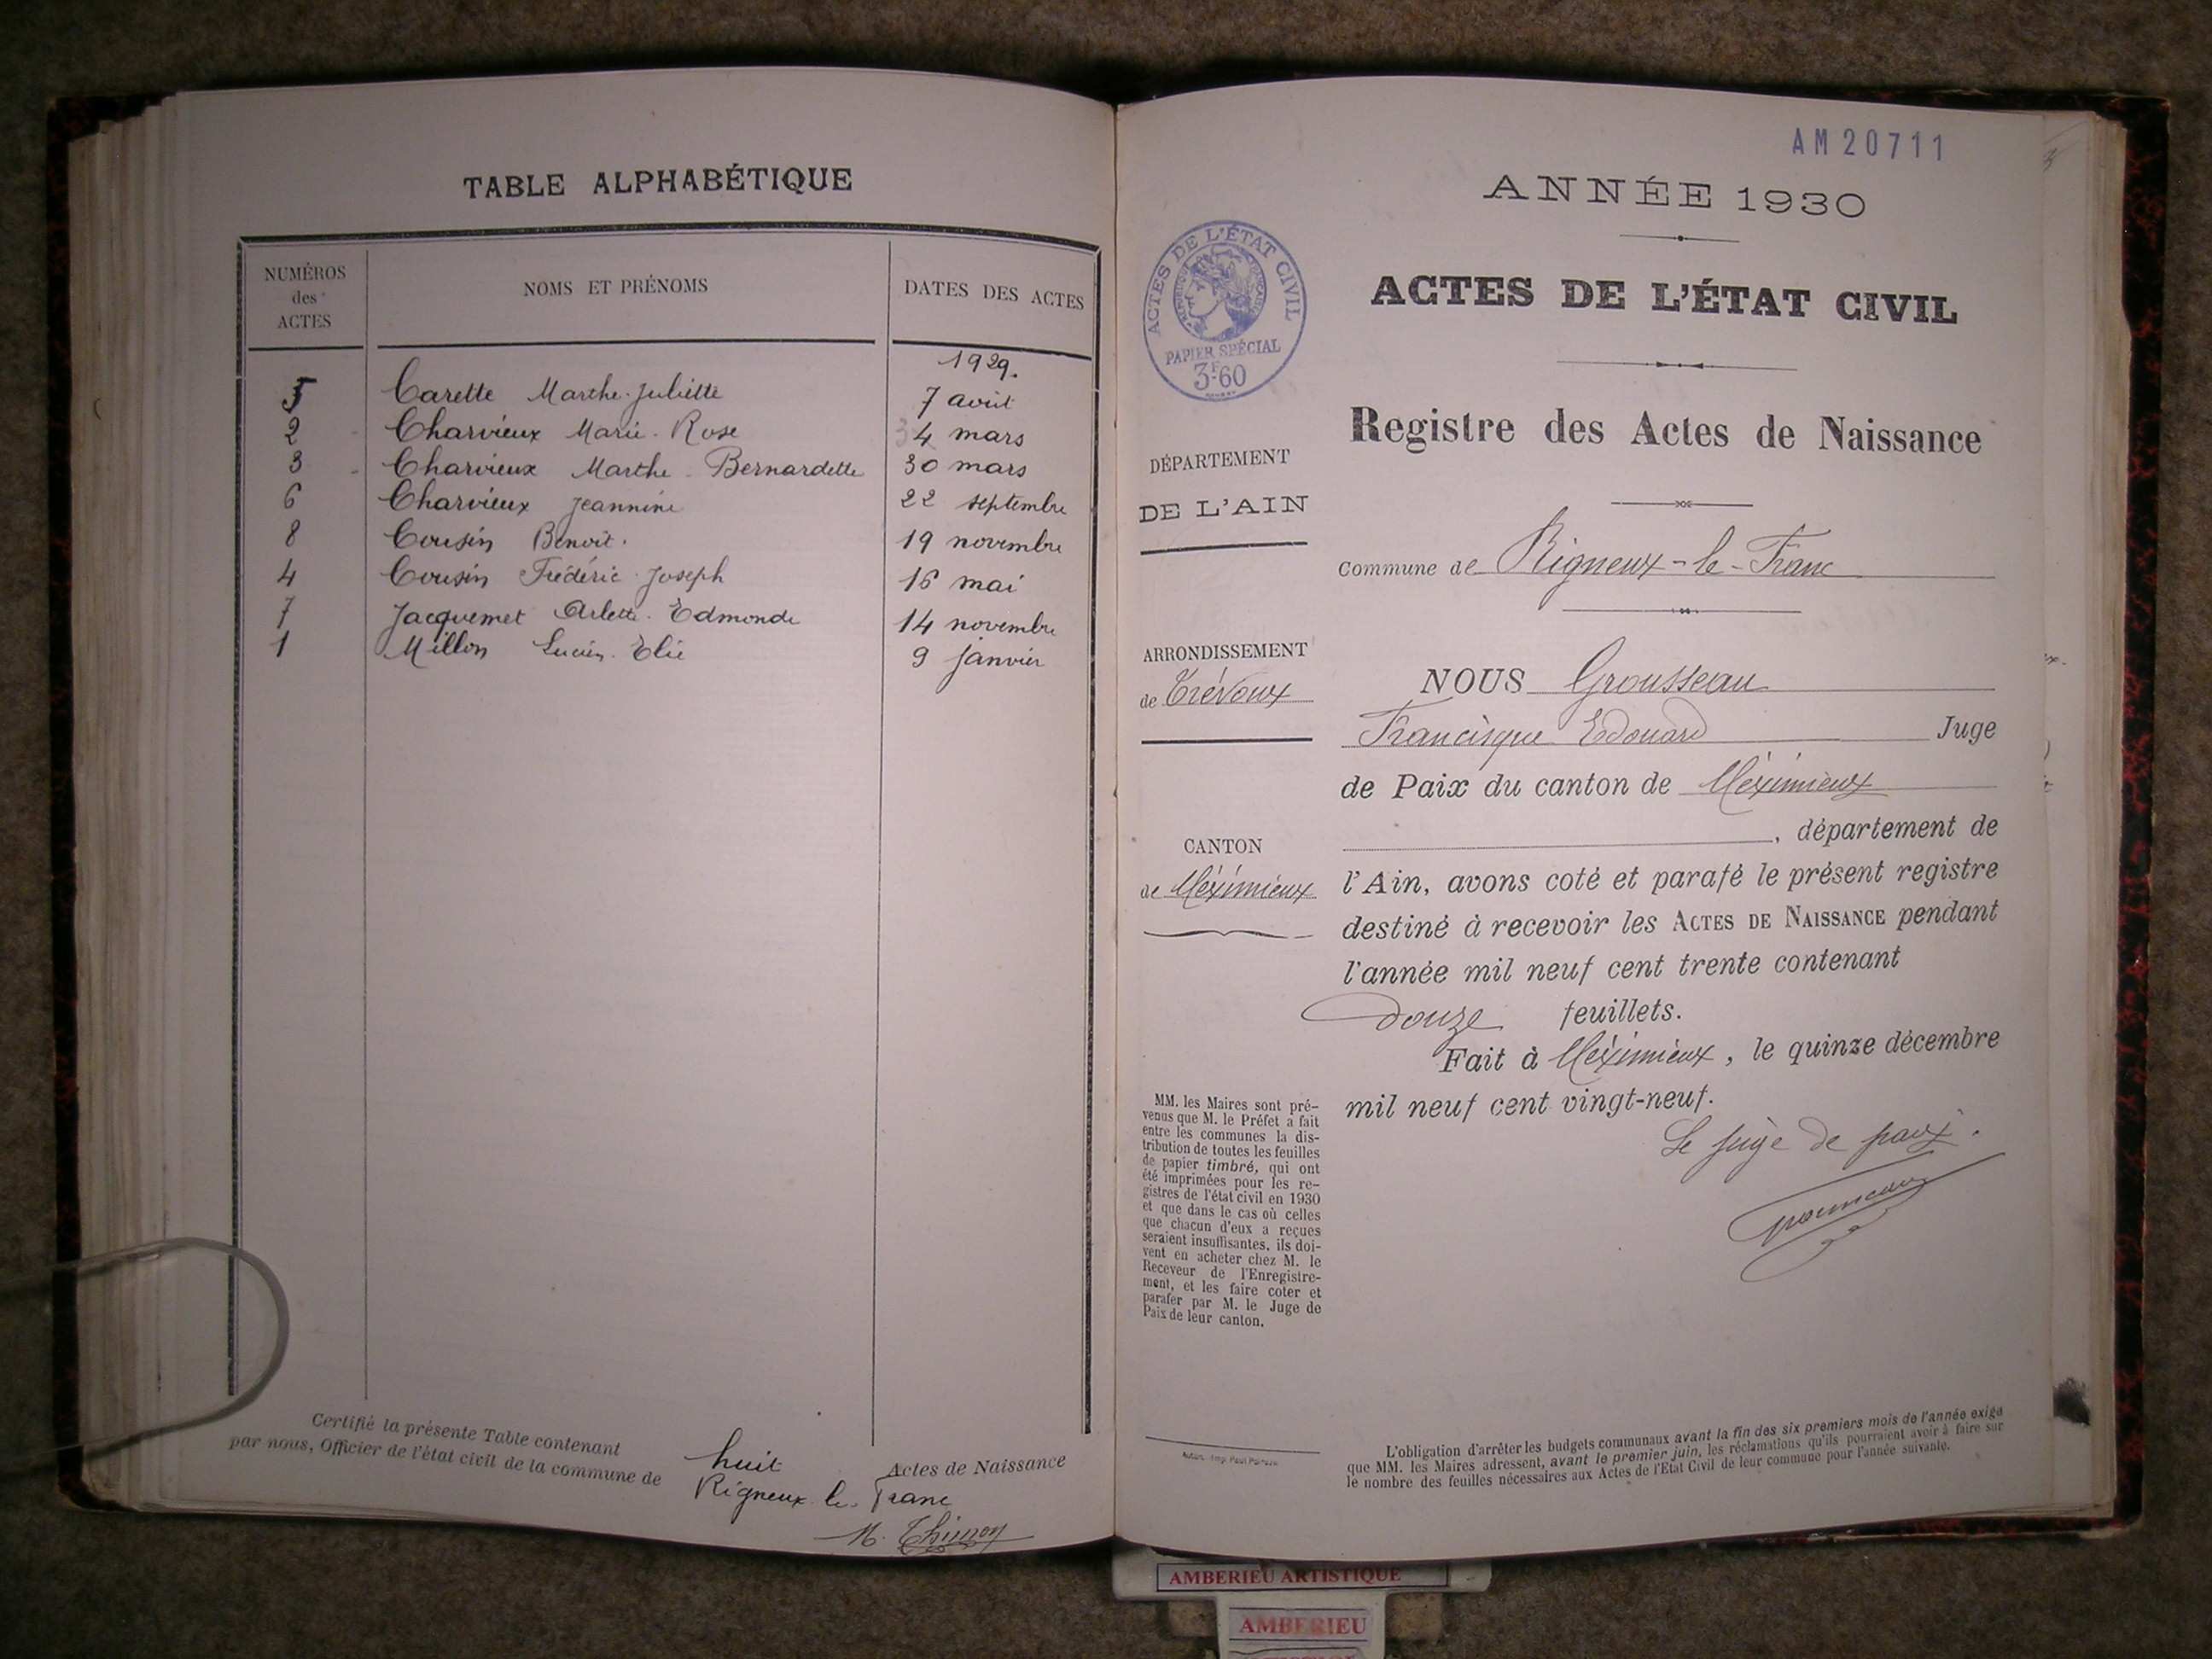 TABLE ALPHABÉTIQUE
NUMÉROS
des
ACTES
NOMS ET PRÉNOMS
DATES DES ACTES
1929.
5 Carette Marthe-Juliette 7 août
2 Charvieux Marie-Rose 4 mars
3 Charvieux Marthe-Bernardette 30 mars
6 Charvieux Jeannine 22 septembre
8 Cousin Benoit. 19 novembre
4 Cousin Frédéric-Joseph 16 mai
7 Jacquemet Arlette-Edmonde 14 novembre
1 Millon Lucien-Elie 9 janvier
Certifié la présente Table contenant huit Actes de Naissance
par nous, Officier de l'état civil de la commune de Rigneux-le-Franc
AM20711
ANNÉE 1930
ACTES DE L'ÉTAT CIVIL
PAPIER SPÉCIAL
3F60
ACTES DE L'ÉTAT CIVIL
Registre des Actes de Naissance
DÉPARTEMENT
DE L'AIN
Commune de Rigneux-le-Franc
ARRONDISSEMENT
de Trévoux
CANTON
de Méximieux
NOUS Grousseau
Francisque Edouard Juge
de Paix du canton de Méximieux
, département de
l'Ain, avons coté et parafé le présent registre
destiné à recevoir les ACTES DE NAISSANCE pendant
l'année mil neuf cent trente contenant
douze feuillets.
Fait à Méximieux, le quinze décembre
mil neuf cent vingt-neuf.
Le juge de paix.
MM. les Maires sont pré-
venus que M. le Préfet a fait
entre les communes la dis-
tribution de toutes les feuilles
de papier timbré, qui ont
été imprimées pour les re-
gistres de l'état civil en 1930
et que dans le cas où celles
que chacun d'eux a reçues
seraient insuffisantes, ils doi-
vent en acheter chez M. le
Receveur de l'Enregistre-
ment, et les faire coter et
parafer par M. le Juge de
Paix de leur canton.
L'obligation d'arrêter les budgets communaux avant la fin des six premiers mois de l'année exige
que MM. les Maires adressent, avant le premier juin, les réclamations qu'ils pourraient avoir à faire sur
le nombre des feuilles nécessaires aux Actes de l'Etat Civil de leur commune pour l'année suivante.
AMBERIEU ARTISTIQUE
AMBERIEU